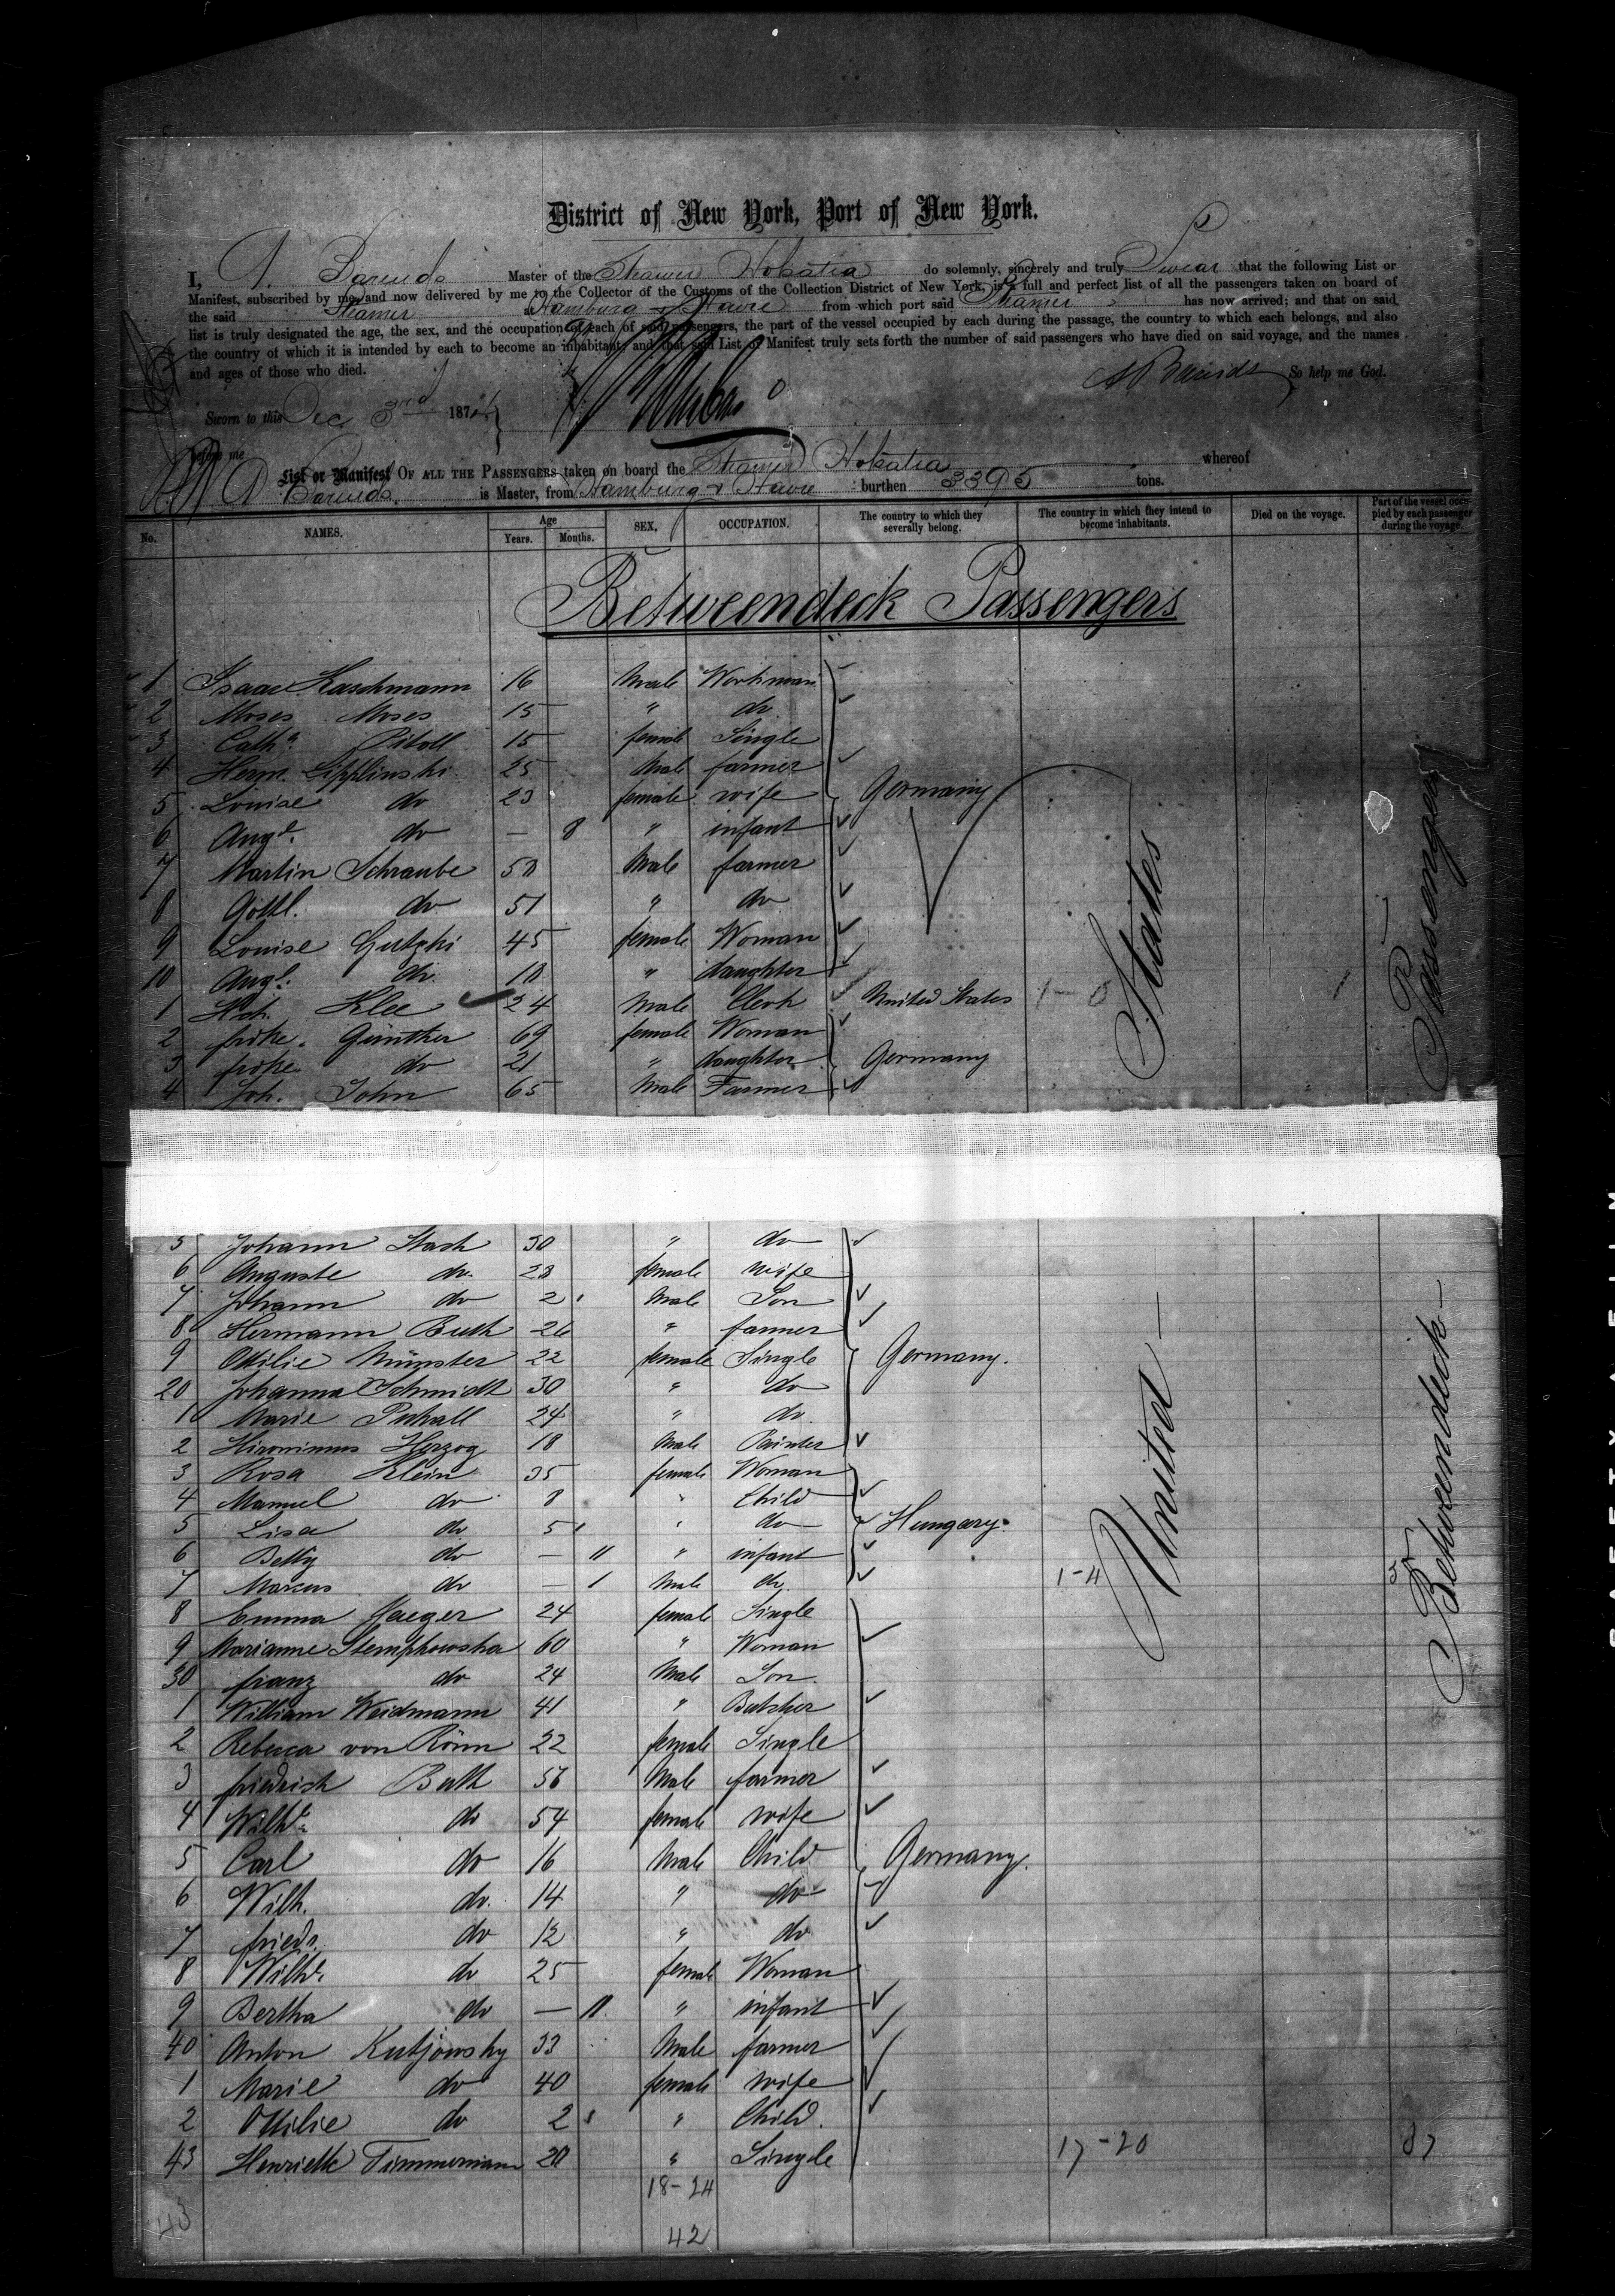 District of New York, Port of New York.
I, A. Barends Master of the Steamer Holsatia do solemnly, sincerely and truly Swear that the following List or
Manifest, subscribed by me, and now delivered by me to the Collector of the Customs of the Collection District of New York, is a full and perfect list of all the passengers taken on board of
the said Steamer at Hamburg & Havre from which port said Steamer has now arrived; and that on said
list is truly designated the age, the sex, and the occupation of each of said passengers, the part of the vessel occupied by each during the passage, the country to which each belongs, and also
the country of which it is intended by each to become an inhabitant; and that said List or Manifest truly sets forth the number of said passengers who have died on said voyage, and the names
and ages of those who died.
A Barends So help me God.
Sworn to this Dec 3rd 187
before me
List or Manifest OF ALL THE PASSENGERS taken on board the Steamer Holsatia whereof
A Barends is Master, from Hamburg & Havre burthen 3395 tons.
No. NAMES. Age Years. Months. SEX. OCCUPATION. The country to which they severally belong. The country in which they intend to become inhabitants. Died on the voyage. Part of the vessel occupied by each passenger during the voyage.
Betweendeck Passengers
1 Isaac Kaschmann 16 Male Workman
2 Moses Moses 15 " do
3 Cath. Pitoll 15 female Single
4 Herm. Lipplinski 25 Male farmer
5 Louise do 23 female wife Germany
6 Aug. do — 8 " infant
7 Martin Schraube 50 Male farmer
8 Gottl. do 51 " do
9 Louise Gutzki 45 female Woman
10 Aug. do 18 " daughter
1 Hch. Klee 24 Male Clerk United States 1-0
2 frike. Günther 69 female Woman
3 frike do 21 " daughter Germany
4 Joh. John 65 Male Farmer
5 Johann Stach 30 " do
6 Auguste do 23 female wife
7 Johann do 2 Male Son
8 Hermann Buth 26 " farmer
9 Ottilie Münster 22 female Single Germany.
20 Johanna Schmidt 30 " do
1 Marie Puhall 24 " do
2 Hironimus Herzog 18 Male Painter
3 Rosa Klein 35 female Woman
4 Manuel do 8 " Child
5 Lisa do 5 " do Hungary.
6 Betty do — 11 " infant
7 Marcus do — 1 Male do 1-4
8 Emma Jaeger 24 female Single
9 Marianne Stemphowska 60 " Woman
30 franz do 24 Male Son
1 William Weidmann 41 " Butcher
2 Rebecca von Rönn 22 female Single
3 friedrich Buth 56 Male farmer
4 Wilhe. do 54 female wife
5 Carl do 16 Male Child Germany.
6 Wilh. do 14 " do
7 friedr. do 12 " do
8 Wilhe. do 25 female Woman
9 Bertha do — 11 " infant
40 Anton Kutjowsky 33 Male farmer
1 Marie do 40 female wife
2 Ottilie do 2 " Child.
43 Henriette Timmermann 20 " Single 17-20
18-24
42
United States
Betweendeck Passengers